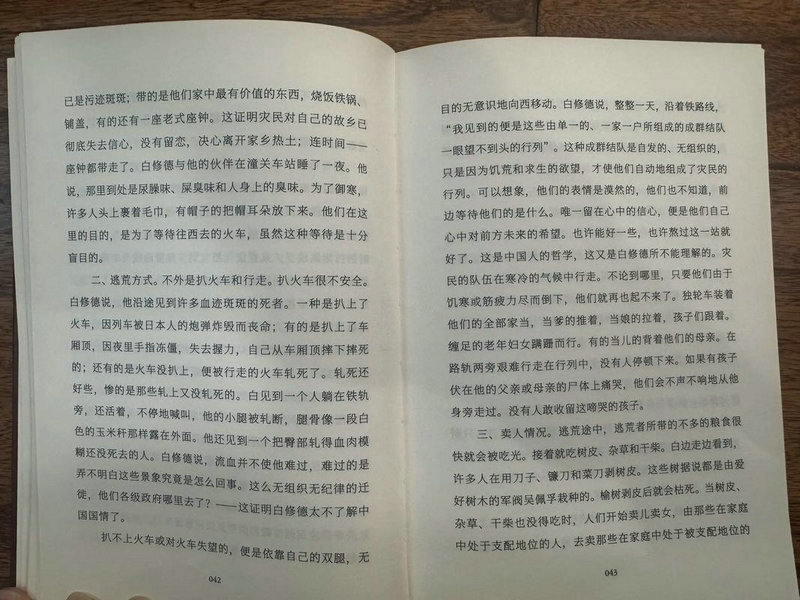 已是污迹斑斑；带的是他们家中最有价值的东西，烧饭铁锅、
铺盖，有的还有一座老式座钟。这证明灾民对自己的故乡已
彻底失去信心，没有留恋，决心离开家乡热土；连时间——
座钟都带走了。白修德与他的伙伴在潼关车站睡了一夜。他
说，那里到处是尿臊味、屎臭味和人身上的臭味。为了御寒，
许多人头上裹着毛巾，有帽子的把帽耳朵放下来。他们在这
里的目的，是为了等待往西去的火车，虽然这种等待是十分
盲目的。
二、逃荒方式。不外是扒火车和行走。扒火车很不安全。
白修德说，他沿途见到许多血迹斑斑的死者。一种是扒上了
火车，因列车被日本人的炮弹炸毁而丧命；有的是扒上了车
厢顶，因夜里手指冻僵，失去握力，自己从车厢顶摔下摔死
的；还有的是火车没扒上，便被行走的火车轧死了。轧死还
好些，惨的是那些轧上又没轧死的。白见到一个人躺在铁轨
旁，还活着，不停地喊叫，他的小腿被轧断，腿骨像一段白
色的玉米秆那样露在外面。他还见到一个把臀部轧得血肉模
糊还没死去的人。白修德说，流血并不使他难过，难过的是
弄不明白这些景象究竟是怎么回事。这么无组织无纪律的迁
徙，他们各级政府哪里去了？——这证明白修德太不了解中
国国情了。
扒不上火车或对火车失望的，便是依靠自己的双腿，无
042
目的无意识地向西移动。白修德说，整整一天，沿着铁路线，
“我见到的便是这些由单一的、一家一户所组成的成群结队
一眼望不到头的行列”。这种成群结队是自发的、无组织的，
只是因为饥荒和求生的欲望，才使他们自动地组成了灾民的
行列。可以想象，他们的表情是漠然的，他们也不知道，前
边等待他们的是什么。唯一留在心中的信心，便是他们自己
心中对前方未来的希望。也许能好一些，也许熬过这一站就
好了。这是中国人的哲学，这又是白修德所不能理解的。灾
民的队伍在寒冷的气候中行走。不论到哪里，只要他们由于
饥寒或筋疲力尽而倒下，他们就再也起不来了。独轮车装着
他们的全部家当，当爹的推着，当娘的拉着，孩子们跟着。
缠足的老年妇女蹒跚而行。有的当儿的背着他们的母亲。在
路轨两旁艰难行走在行列中，没有人停顿下来。如果有孩子
伏在他的父亲或母亲的尸体上痛哭，他们会不声不响地从他
身旁走过。没有人敢收留这啼哭的孩子。
三、卖人情况。逃荒途中，逃荒者所带的不多的粮食很
快就会被吃光。接着就吃树皮、杂草和干柴。白边走边看到，
许多人在用刀子、镰刀和菜刀剥树皮。这些树据说都是由爱
好树木的军阀吴佩孚栽种的。榆树剥皮后就会枯死。当树皮、
杂草、干柴也没得吃时，人们开始卖儿卖女，由那些在家庭
中处于支配地位的人，去卖那些在家庭中处于被支配地位的
043